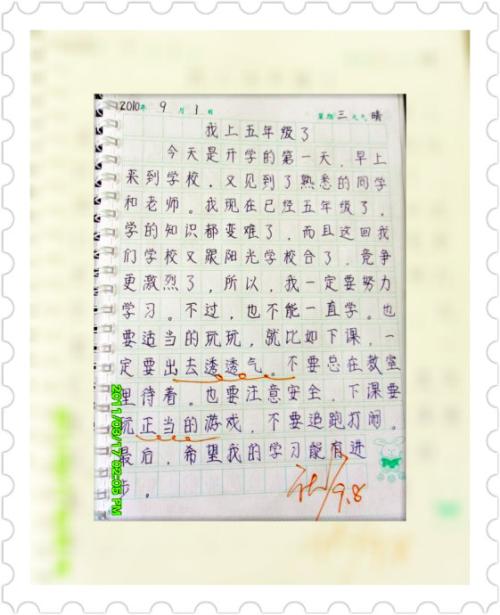 2010年 9月 1日 星期三 天气晴
我上五年级了
今天是开学的第一天，早上
来到学校，又见到了熟悉的同学
和老师。我现在已经五年级了，
学的知识都变难了，而且这回我
们学校又跟阳光学校合了，竞争
更激烈了，所以，我一定要努力
学习。不过，也不能一直学。也
要适当的玩玩，就比如下课，一
定要出去透透气。不要总在教室
里待着。也要注意安全，下课要
玩正当的游戏，不要追跑打闹。
最后，希望我的学习能有进
步。
9.8
2011/03/17 02:05 PM